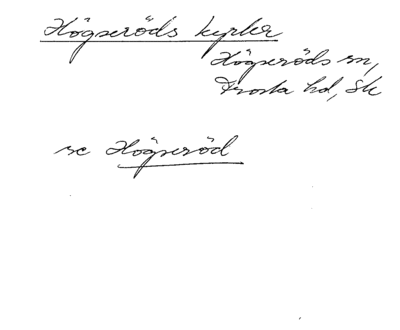 Högseröds kyrka
Högseröds sn,
Frosta hd, Sk
se Högseröd